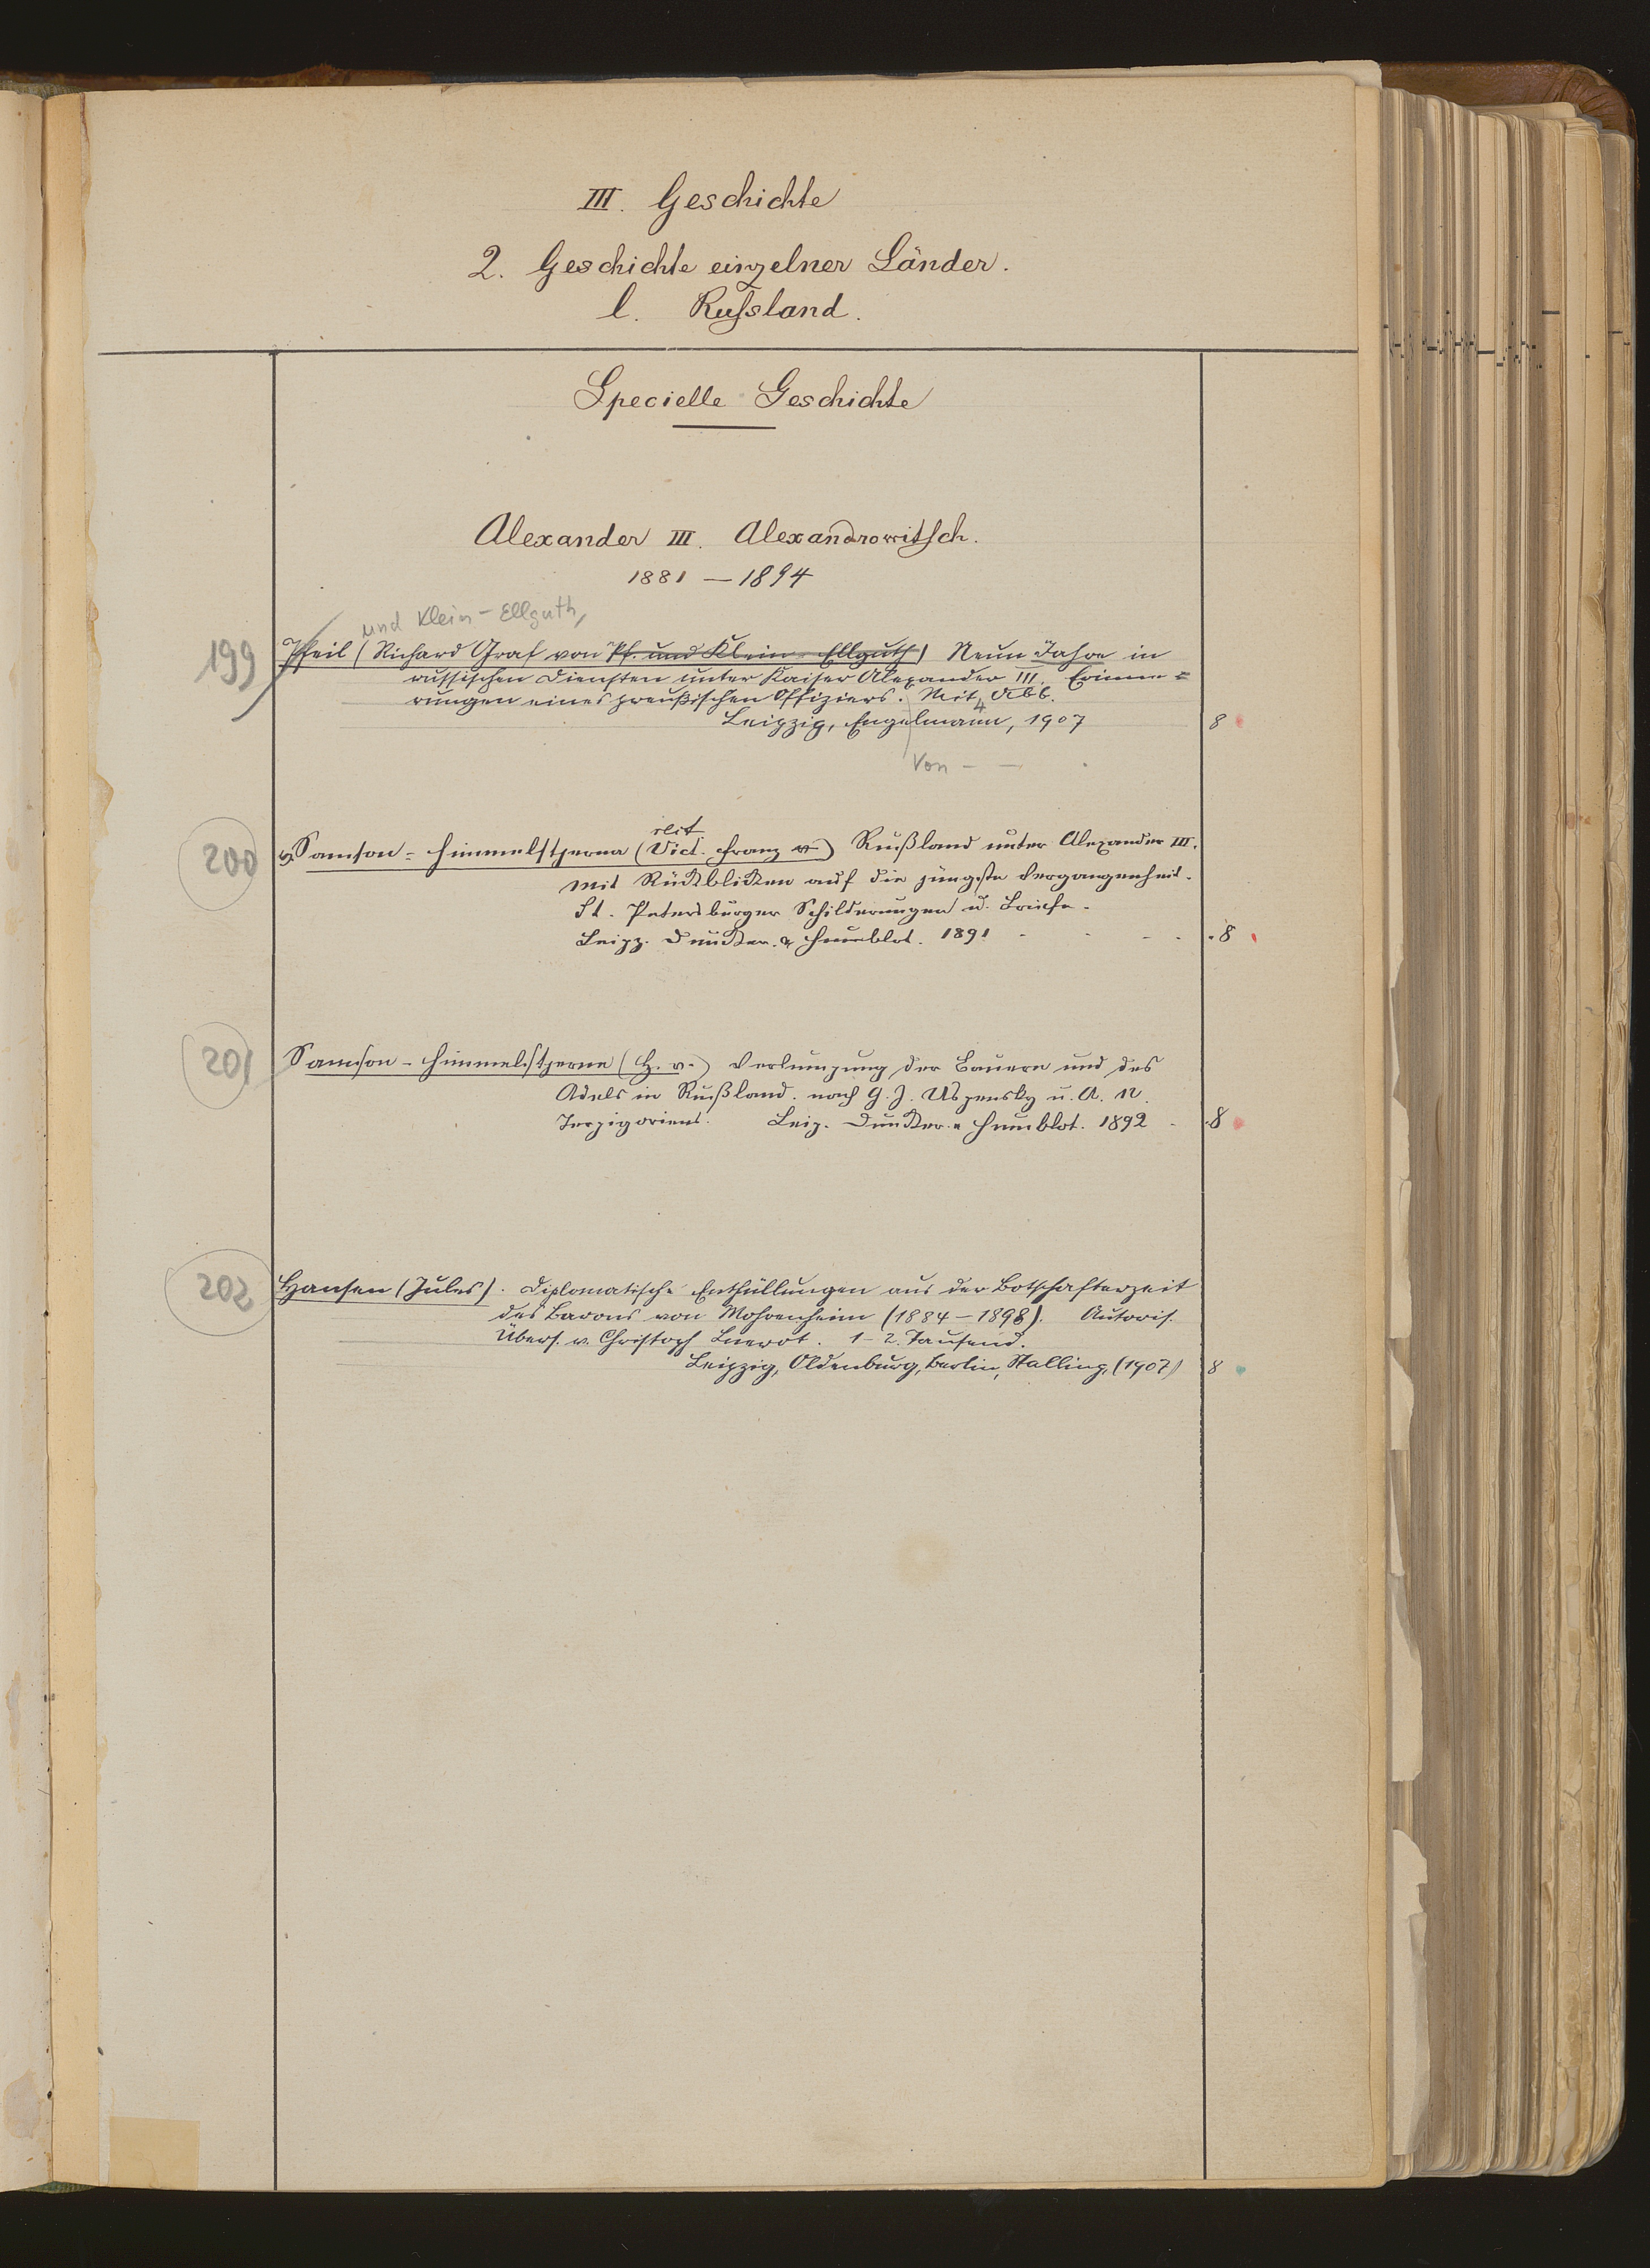 III. Geschichte
2. Geschichte einzelner Länder.
l. Russland.
Specielle Geschichte
Alexander III. Alexandrowitsch.
1881 — 1894
und Klein-Ellguth,
199 Pfeil (Richard Graf von Pf. und Klein-Ellguth) Neun Jahre in
russischen Diensten unter Kaiser Alexander III. Erinne=
rungen eines preußischen Offiziers. Mit 4 Abb.
Leipzig, Engelmann, 1907 8
Von — —
200 v. Samson-Himmelstjerna (Vict. Franz v.) Rußland unter Alexander III.
Mit Rückblicken auf die jüngste Vergangenheit.
St. Petersburger Schilderungen u. Briefe.
Leipz. Duncker & Humblot. 1891 8
201 Samson-Himmelstjerna (H. v.) Verlumpung der Bauern und des
Adels in Rußland. nach G. J. Uspensky u. A. N.
Terpigoriew. Leip. Duncker & Humblot. 1892 8
202 Hansen (Jules). Diplomatische Enthüllungen aus der Botschafterzeit
des Barons von Mohrenheim (1884–1898). Autoris.
Übers. v. Christoph 1–2. Tausend.
Leipzig, Oldenburg, Berlin, Stalling, (1907) 8